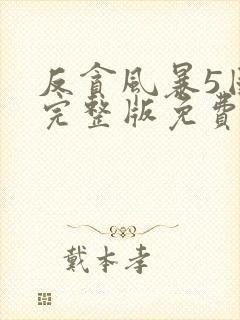 反貪風暴5国
完整版免費
戴本孝